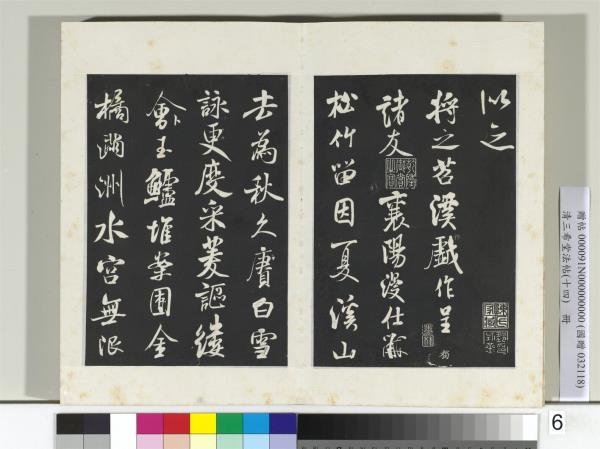 之
將之苕溪戲作呈
諸友
襄陽漫仕黻
松竹留因夏溪山
去為秋久賡白雪
詠更度采菱謳縷
會玉鱸堆案團金
橘滿洲水宮無限
贈帖 000091N000000000 (國贈 032118)
清三希堂法帖(十四) 冊
6